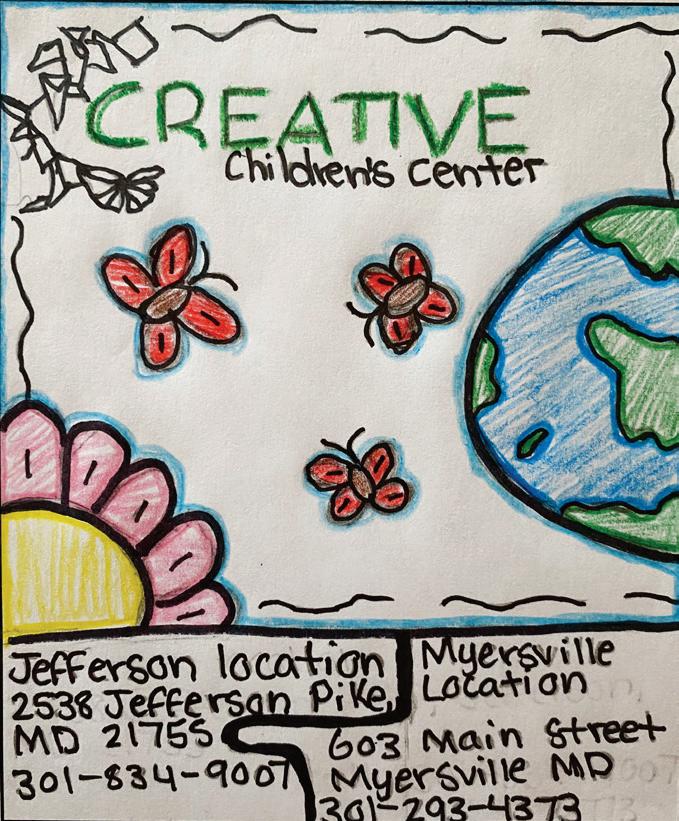 CREATIVE
Children's center
Jefferson location
2538 Jefferson Pike,
MD 21755
301-834-9007
Myersville
Location
603 Main Street
Myersville MD
301-293-4373